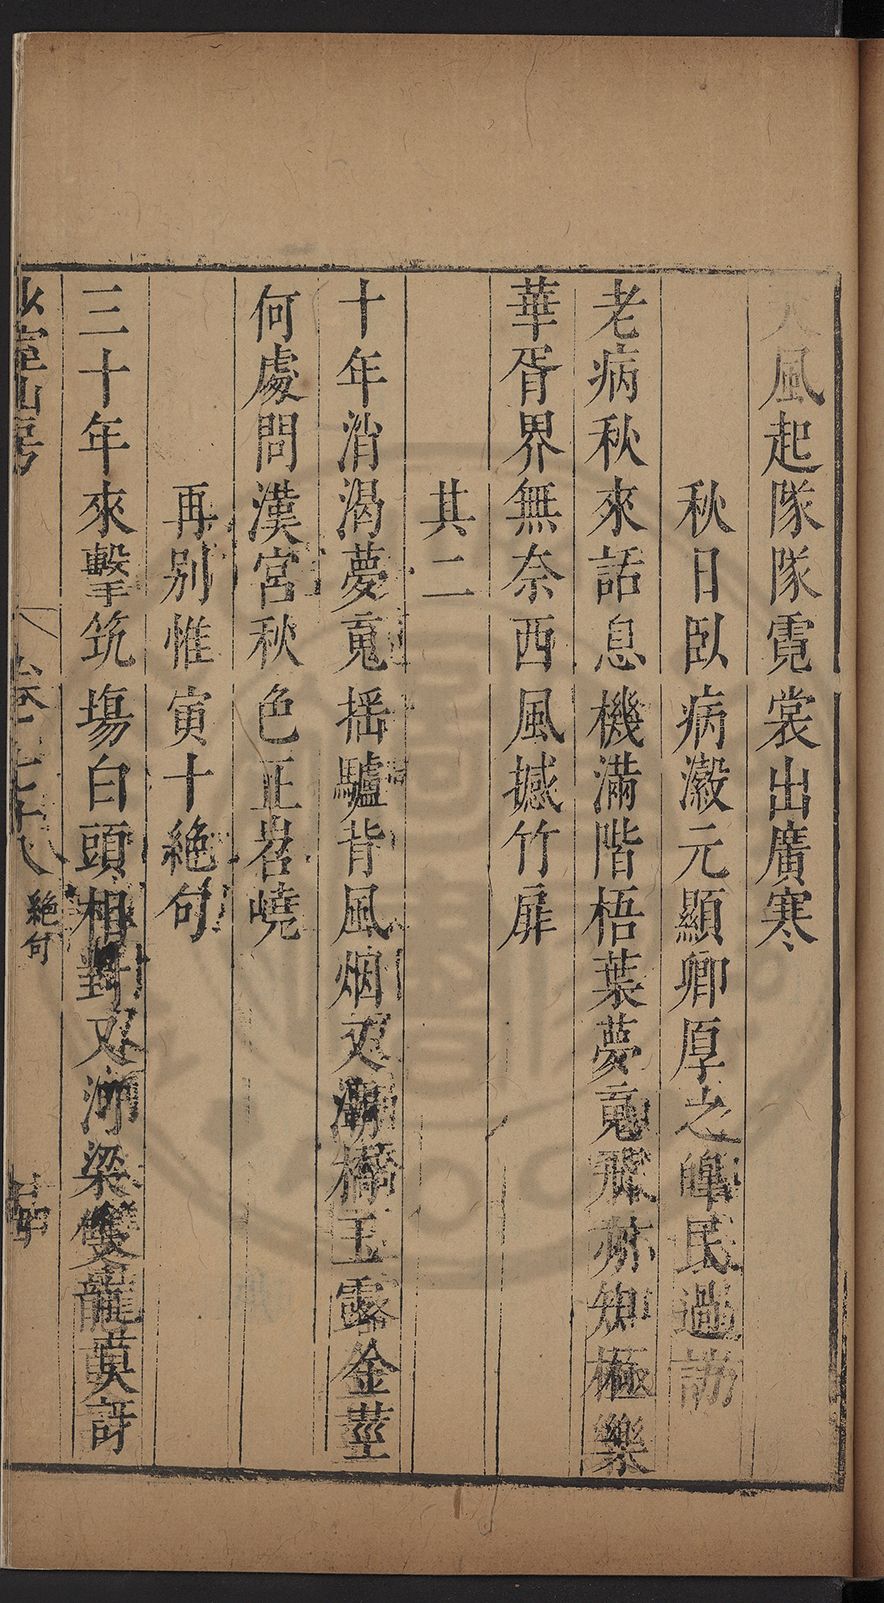 天風起隊隊霓裳出廣寒
秋日臥病瀫元顯卿厚之皥民過訪
老病秋來話息機滿階梧葉夢覔飛亦知極樂
華胥界無奈西風撼竹扉
其二
十年消渴夢覔搖驢背風烟又灞橋玉露金莖
何處問漢宮秋色正岧嶢
再別惟寅十絶句
三十年來擊筑塲白頭相對又河梁雙龍莫訝
少室山房
卷之七十八
絶句